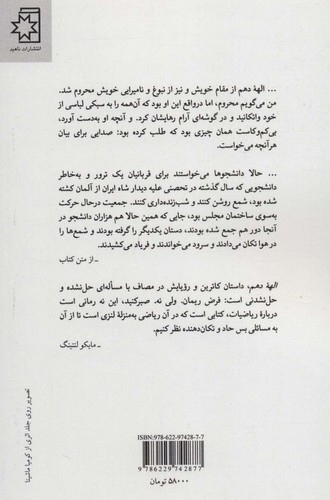 انتشارات ناهید
... الههٔ دهم از مقام خویش و نیز از نبوغ و نامیرایی خویش محروم شد.
من می‌گویم محروم، اما درواقع این او بود که آن‌همه را به سبکی لباسی از
خود واتکانید و در گوشه‌ای آرام رهایشان کرد. و آنچه او به‌دست آورد،
بی‌کم‌وکاست همان چیزی بود که طلب کرده بود: صدایی برای بیان
هرآنچه می‌خواست.
... حالا دانشجوها می‌خواستند برای قربانیان یک ترور و به‌خاطر
دانشجویی که سال گذشته در تحصنی علیه دیدار شاه ایران از آلمان کشته
شده بود، شمع روشن کنند و شب‌زنده‌داری کنند. جمعیت درحال حرکت
به‌سوی ساختمان مجلس بود، جایی که همین حالا هم هزاران دانشجو در
آنجا دور هم جمع شده بودند، دستان یکدیگر را گرفته بودند و شمع‌ها را
در هوا تکان می‌دادند و سرود می‌خواندند و فریاد می‌کشیدند.
ـ از متن کتاب
الههٔ دهم، داستان کاترین و رؤیایش در مصاف با مسأله‌ای حل‌نشده و
حل‌نشدنی است: فرض ریمان. ولی نه. صبرکنید، این نه رمانی است
دربارهٔ ریاضیات، کتابی است که در آن ریاضی به‌منزلهٔ لنزی است تا از آن
به مسائلی بس حاد و تکان‌دهنده نظر کنیم.
ـ مایکو لنتینگ
تصویر روی جلد اثری از کومیا ماشیتا
ISBN: 978-622-97428-7-7
9 786229 742877
۵۸۰۰۰ تومان